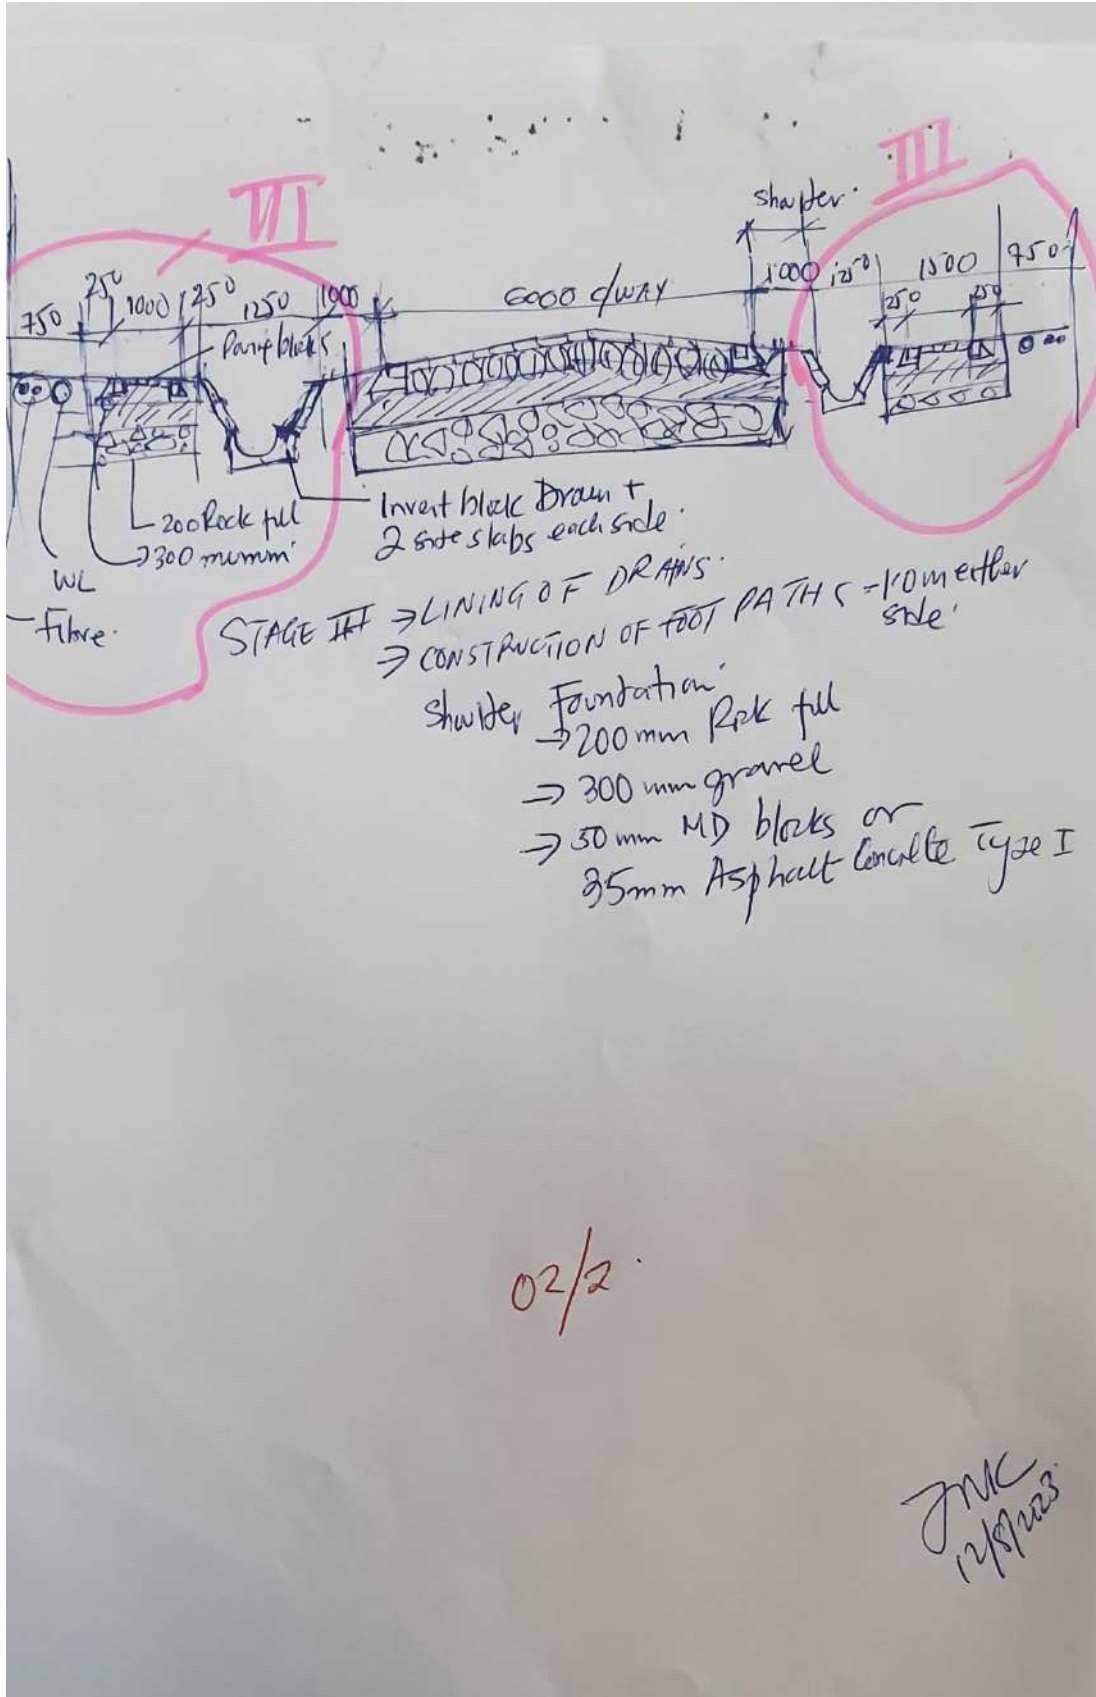 III
III
shoulder.
750 250 1000 250 1250 1000 6000 C/WAY 1000 1250 1500 750
250 250
Paving blocks
200 Rock fill
300
WL
Fibre.
Invert block Drain +
2 side slabs each side.
STAGE III → LINING OF DRAINS.
→ CONSTRUCTION OF FOOT PATHS - 1.0m either
side.
Shoulder Foundation.
→ 200mm Rock fill
→ 300 mm gravel
→ 50 mm MD blocks or
35mm Asphalt Concrete Type I
02/2.
JNK
12/8/2023.